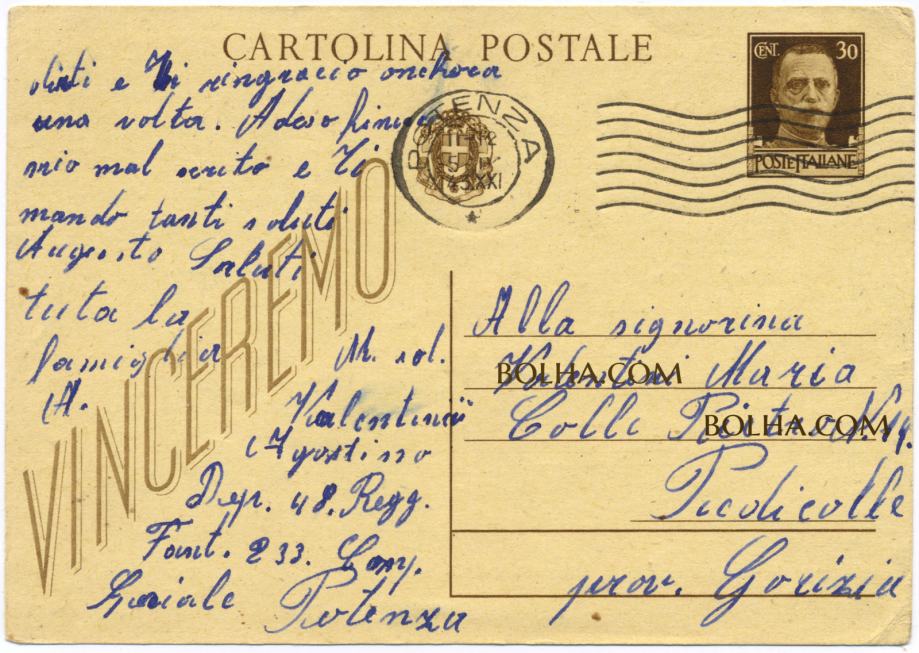 CARTOLINA POSTALE
CENT. 30
POSTE ITALIANE
POTENZA
XXI
e Ti ringracio anchora
una volta. Adeso finisco
mio mal scrito e Ti
mando tanti saluti
Augusto Saluti
tuta la
famiglia M. sol.
A. Valentincič
Agostino
Dep. 48. Regg.
Fant. 233. Comp.
Speciale Potenza
VINCEREMO
Alla signorina
Maria
BOLHA.COM
Colle
BOLHA.COM
Piedicolle
prov. Gorizia